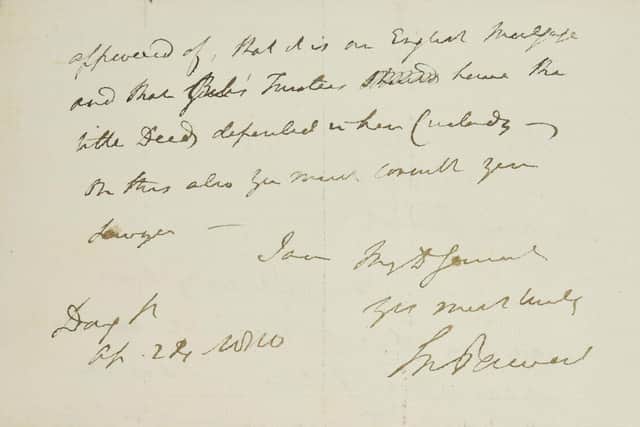 approved of, that it is an English Mortgage
and that Trustees should have the
title Deeds deposited in their Custody —
On this also you must consult your
Lawyer —
I am My D General
Yrs most truly
Ap. 24, 1810